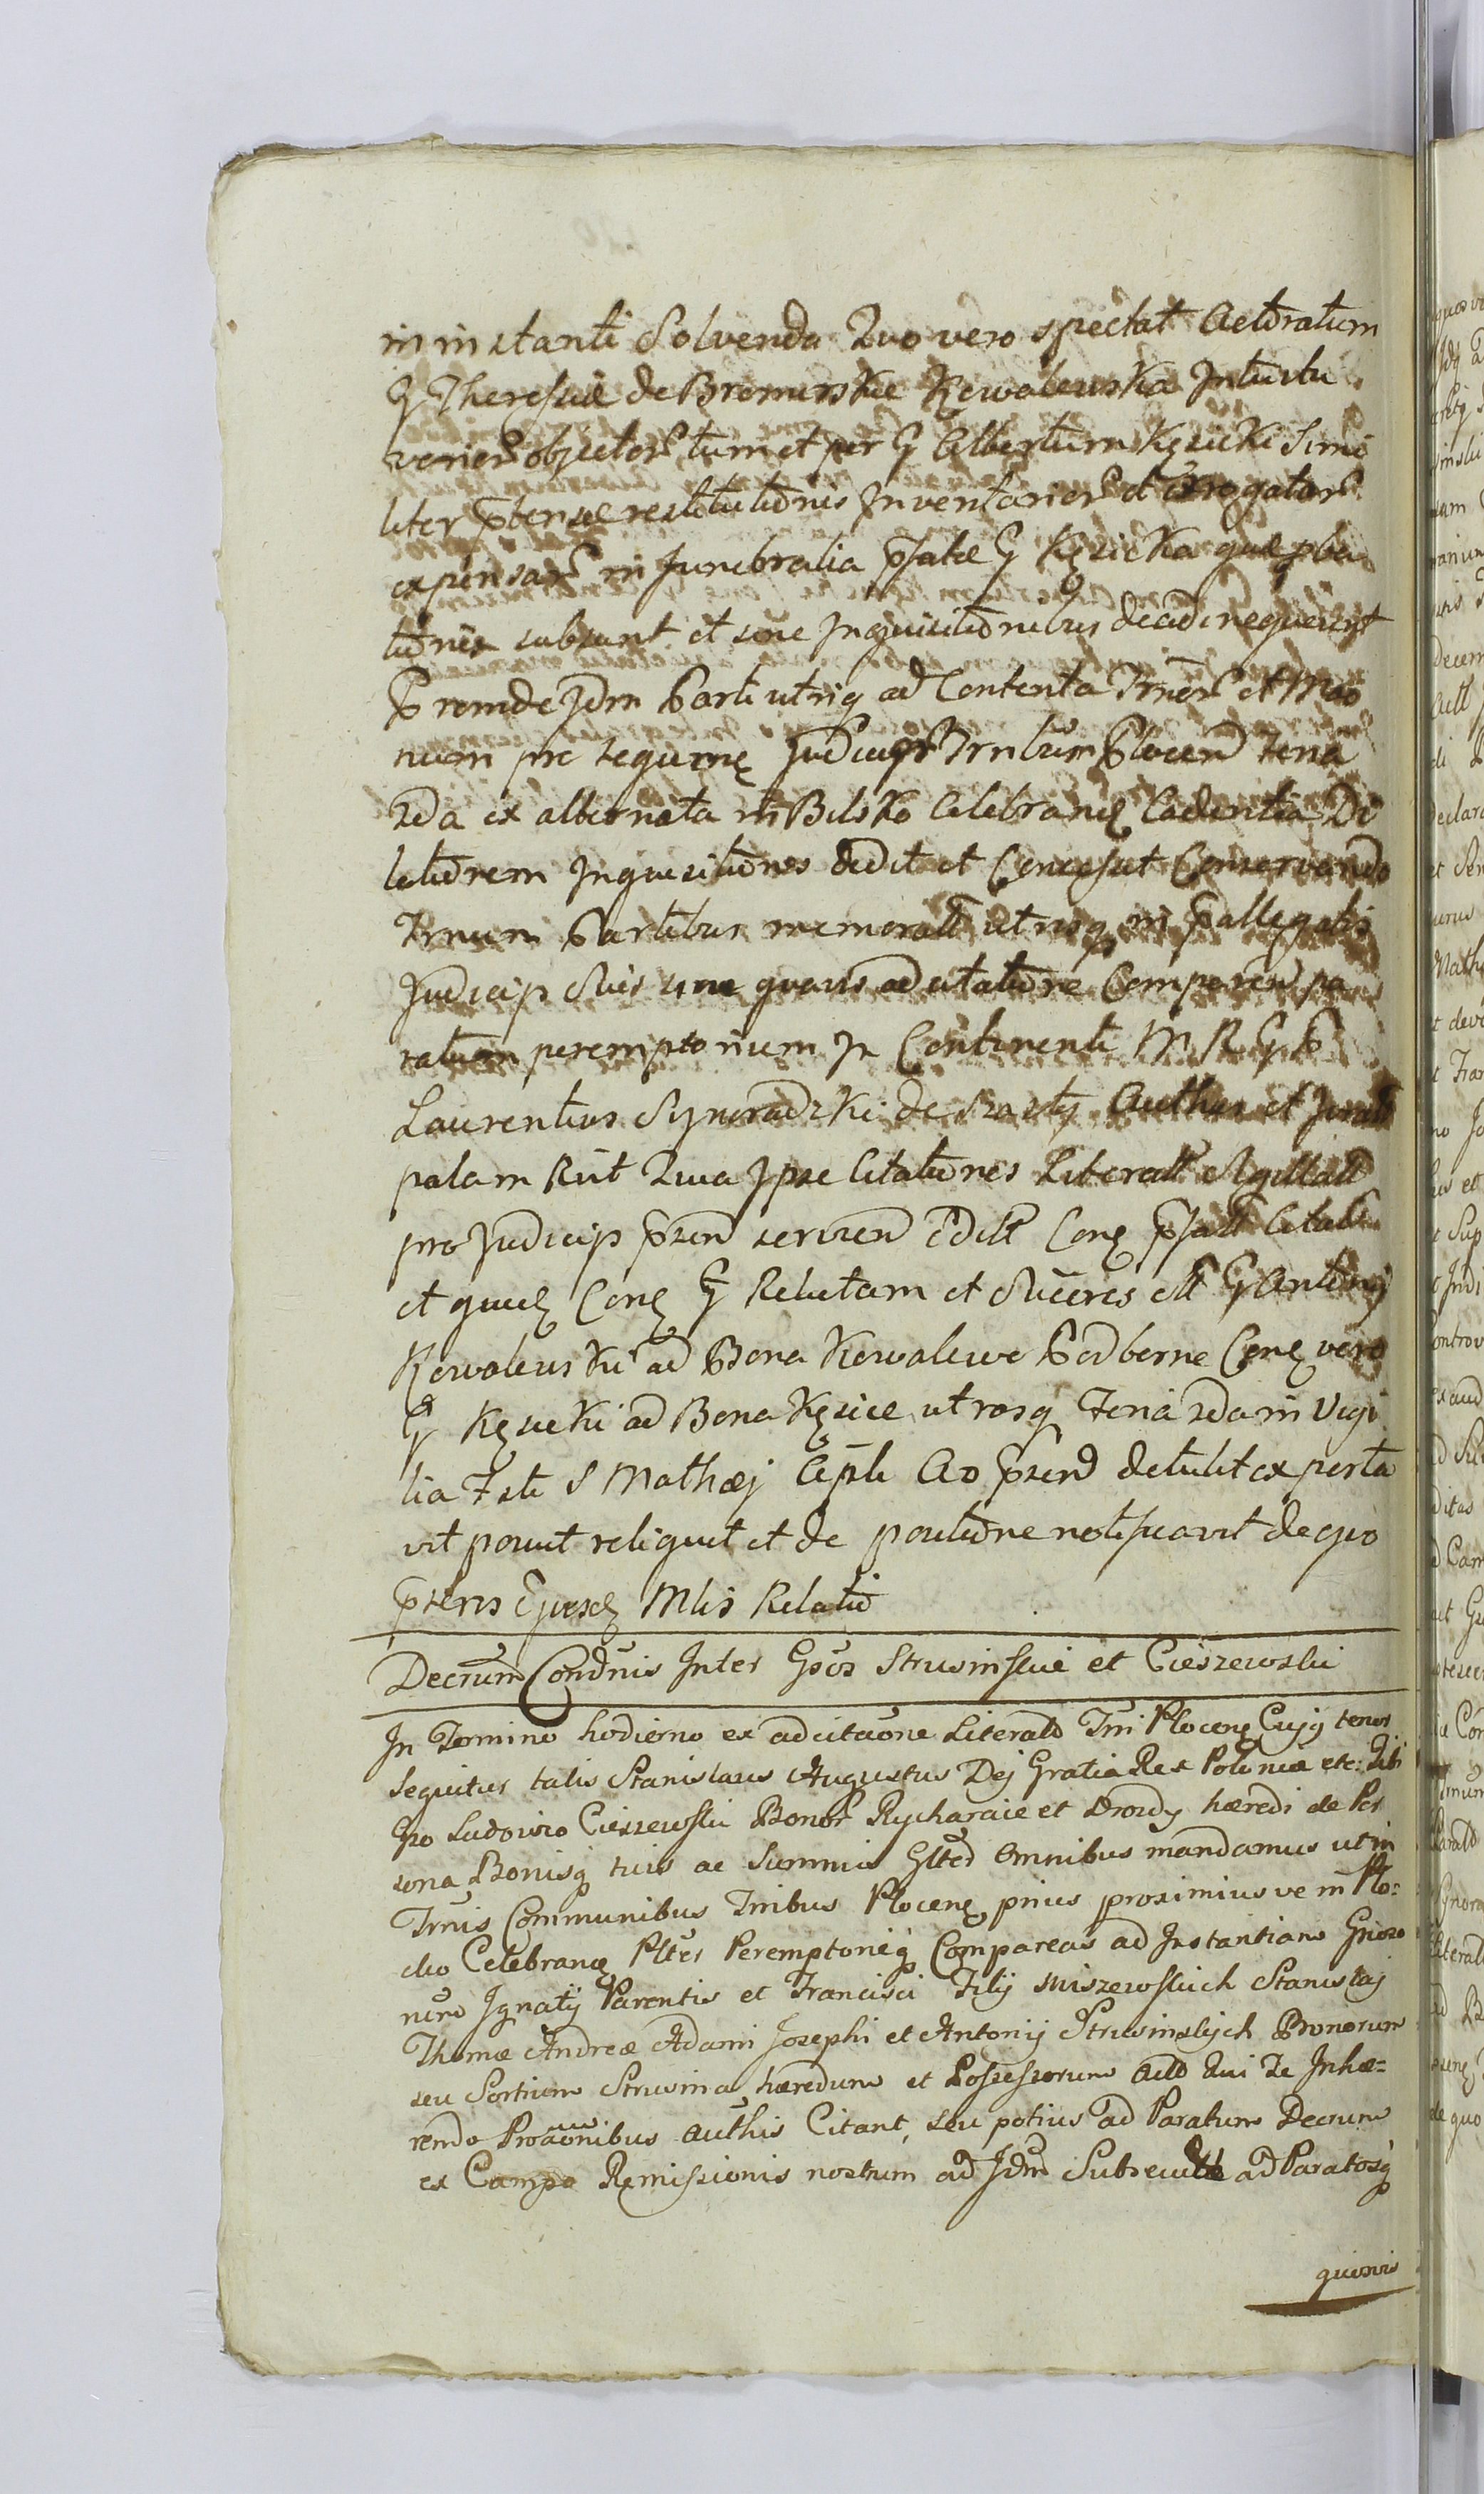 in instanti Solvenda Quo vero spectat Actoratum
G Theresiae de Bromirskie Kowalewska Intuitu
verior objector tum et per G Albertum Kęsicki Simi
liter ptensae restitutionis Inventarior et Erogatar
expensar in funebralia pfatae G Kęsicka quae pba
tionis subsunt et sine Inquisitionibus decidi nequeunt
Proinde Idm Parti utriq ad Contenta Tmor et Mao
num pre sequenę Judicijs Trntrum Plocen feria
2da ex alternata in Bilsko Celebranę Cadentia Di
lationem Inquisitiones dedit et Concessit Conservando
Trnum Partibus memoratt utrisq in pallegatis
Judicijs Suis sine quavis adcitatione Comparen pa
ratum peremptorium In Continenti M R G P
Laurentius Synoradzki de Authus et Jurat
palam Rut Quia Ipse Citationes Literatt Sigillatt
pro Judicijs psen servien editt Conę pfatt Citati
et quidę Conę G Relictam et Succres olt G Antonij
Kowalewski ad Bona Kowalewo Podborne Conę vero
G Kęsicki ad Bona Kęsice utrasq Feria 2da in Vigi
lia Festi S Mathaej Apli Ao psen detulit experta
vit posuit reliquit et de positione notificavit de quo
pstens Ejusdę Mlis Relatio
Decrum Condnis Inter Gsos Strusinskie et Cieszewski
In Termino hodierno ex adcitatione Literali Tmi Plocenę Cujq tenor
sequitur talis Stanislaus Augustus Dej Gratia Rex Poloniae etc: Tibi
Gso Ludovico Cieszewski Bonor Rycharcice et Drozdy haeredi de Per
sona Bonisq tuis ac Summis Glter omnibus mandamus ut in
Trnis Communibus Tribus Plocenę prius proximius ve in Plo:
cko Celebranę Plter Peremptorieq Compareas ad Instantiam Gnioro
num Ignatij Parentis et Francisci Filij Miszewskich Stanislaj
Thomae Andreae Adami Josephi et Antonij Strusinskich Bonorum
seu Sortium Strusina haeredum et Possessorum Actt Qui Te Inhae=
rendo Proaonibus Authis Citant, seu potius ad Paratum Decrum
ex Campo Remissionis nostrum ad Idm Subsecutt ad Paratosq
quosvis